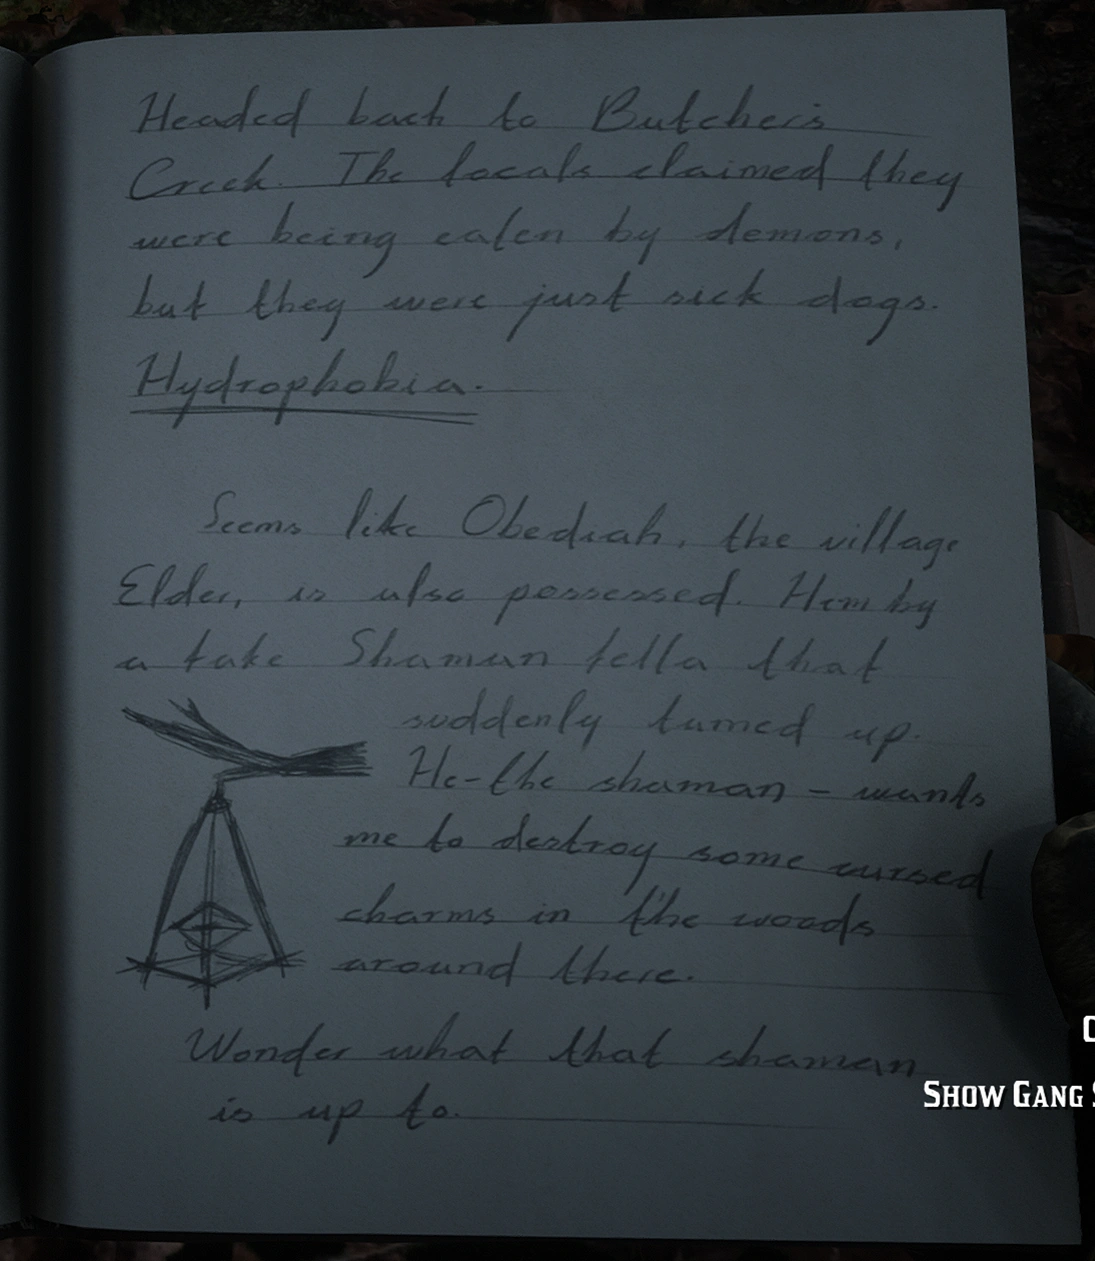 Headed back to Butchers
Creek. The locals claimed they
were being eaten by demons,
but they were just sick dogs.
Hydrophobia.
Seems like Obediah, the village
Elder, is also possessed. Him by
a fake Shaman fella that
suddenly turned up.
He - the shaman - wants
me to destroy some cursed
charms in the woods
around there.
Wonder what that shaman
is up to.
SHOW GANG